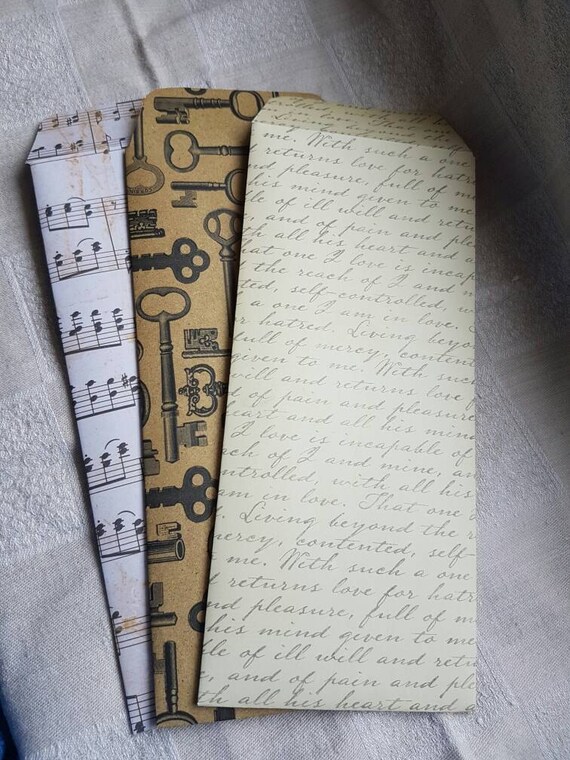 me. With such a one
returns love for hatred
nd pleasure, full of me
his mind given to me.
le of ill will and retu
and of pain and ple
th all his heart and a
hat one I love is incap
the reach of I and m
ted, self-controlled, w
a one I am in love. C
r hatred. Living beyo
full of mercy, contented
given to me. With such
will and returns love f
d of pain and pleasure
heart and all his mind
I love is incapable of
ach of I and mine, an
ntrolled, with all his
am in love. That one
d. Living beyond the r
mercy, contented, self-
me. With such a one
d returns love for hatr
nd pleasure, full of me
his mind given to me
le of ill will and retu
e, and of pain and ple
th all his heart and a